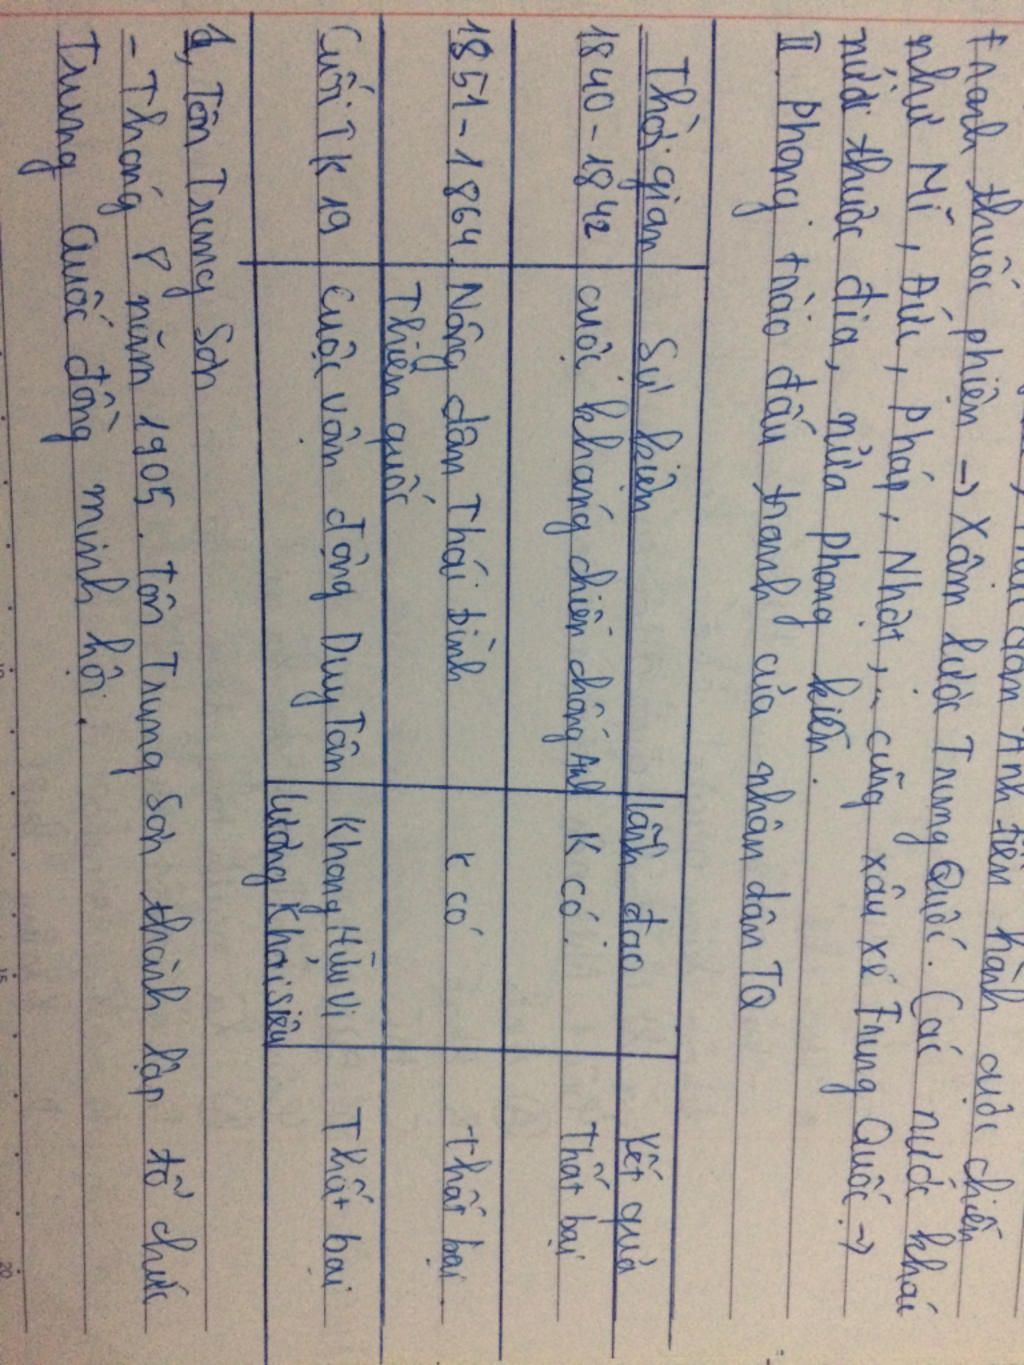 Anh tiến hành cuộc chiến
tranh thuốc phiện → Xâm lược Trung Quốc. Các nước khác
như Mĩ, Đức, Pháp, Nhật,... cũng xâu xé Trung Quốc →
nước thuộc địa, nửa phong kiến.
II. Phong trào đấu tranh của nhân dân TQ
Thời gian Sự kiện Lãnh đạo Kết quả
1840 - 1842 cuộc kháng chiến chống Anh K có. Thất bại
1851 - 1864. Nông dân Thái Bình K có Thất bại.
Thiên quốc
Cuối TK 19 Cuộc vận động Duy Tân Khang Hữu Vi Thất bại
Lương Khải Siêu
1, Tôn Trung Sơn
- Tháng 8 năm 1905. Tôn Trung Sơn thành lập tổ chức
Trung Quốc đồng minh hội.